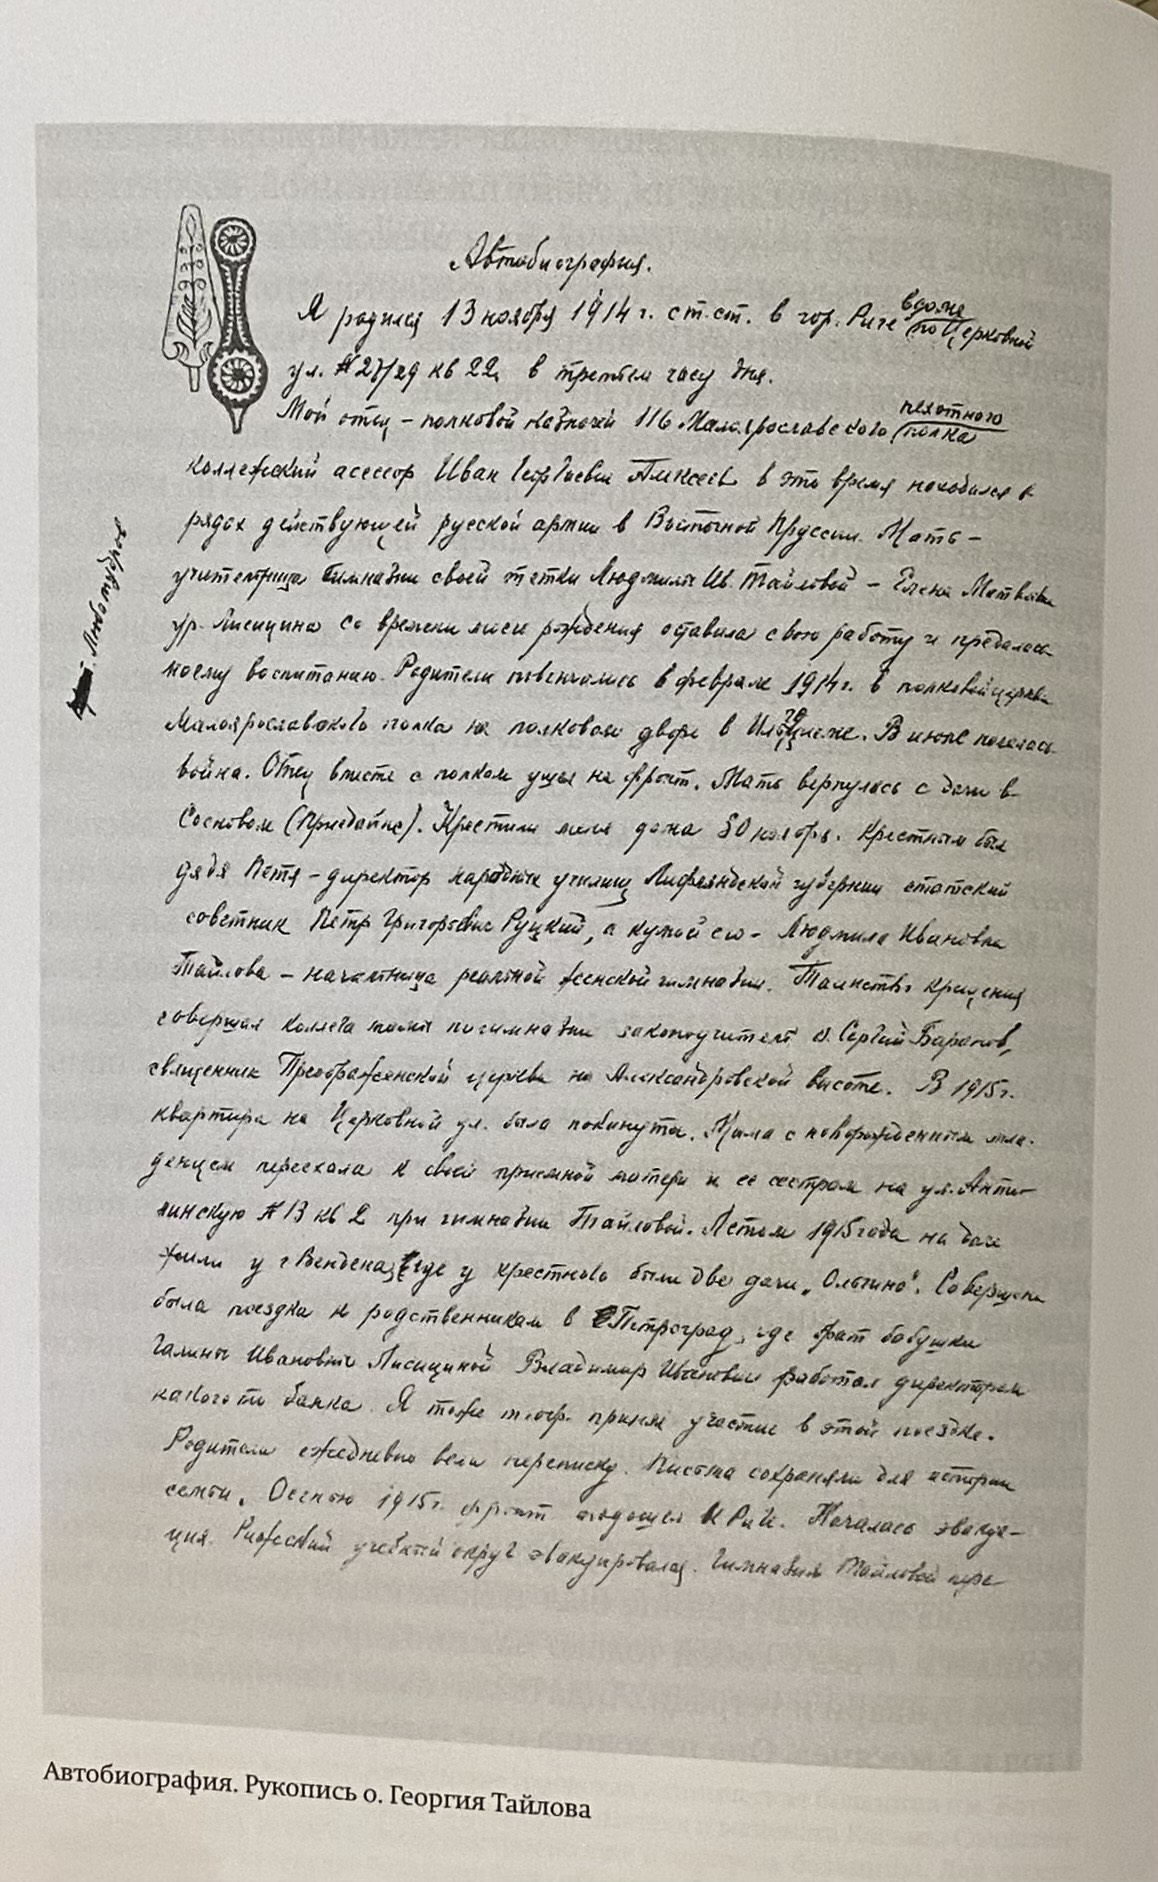 Автобиография.
Я родился 13 ноября 1914 г. ст. ст. в гор. Риге в доме по Церковной
ул. № 27/29 кв 22, в третьем часу дня.
Мой отец – полковой казначей 116 Малоярославского пехотного полка
коллежский асессор Иван Георгиевич Алексеев в это время находился в
рядах действующей русской армии в Восточной Пруссии. Мать –
учительница гимназии своей тетки Людмилы Ив. Тайловой – Елена Матвеевна
ур. Лисицина со времени моего рождения оставила свою работу и предалась
моему воспитанию. Родители повенчались в феврале 1914 г. в полковой церкви
Малоярославского полка на полковом дворе в . В июле началась
война. Отец вместе с полком ушел на фронт. Мать вернулась с дачи в
Сосновом (Приедайне). Крестили меня дома 30 ноября. Крестным был
дядя Петя – директор народных училищ Лифляндской губернии статский
советник Петр Григорьевич Руцкий, а кумой его – Людмила Ивановна
Тайлова – начальница реальной женской гимназии. Таинство крещения
совершал коллега по гимназии законоучитель о. Сергий Баранов,
священник Преображенской церкви на Александровской высоте. В 1915 г.
квартира на Церковной ул. была покинута. Мама с новорожденным мла-
денцем переехала к своей приемной матери и ее сестрам на ул. 
№ 13 кв 2 при гимназии Тайловой. Летом 1915 года на даче
жили у г Вендена, где у крестного были две дачи „Ольгино“. Совершена
была поездка к родственникам в Петроград, где брат бабушки
Галины Ивановны Лисициной Владимир Иванович работал директором
какого то банка. Я тоже принял участие в этой поездке.
Родители ежедневно вели переписку. Письма сохраняли для истории
семьи. Осенью 1915 г. фронт подошел к Риге. Началась эвакуа-
ция. Рижский учебный округ эвакуировался. Гимназия Тайловой пере
Автобиография. Рукопись о. Георгия Тайлова